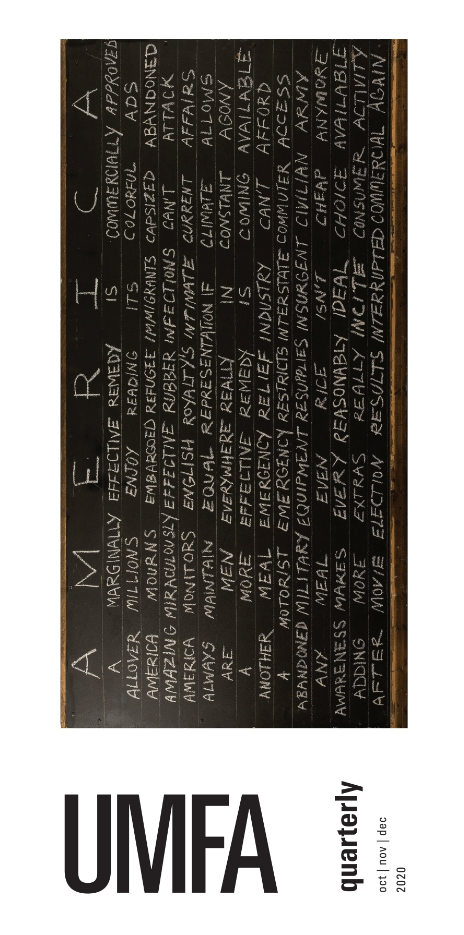 A M E R I C A
A MARGINALLY EFFECTIVE REMEDY IS COMMERCIALLY APPROVED
ALLOVER MILLIONS ENJOY READING ITS COLORFUL ADS
AMERICA MOURNS EMBARGOED REFUGEE IMMIGRANTS CAPSIZED ABANDONED
AMAZING MIRACULOUSLY EFFECTIVE RUBBER INFECTIONS CAN'T ATTACK
AMERICA MONITORS ENGLISH ROYALTY'S INTIMATE CURRENT AFFAIRS
ALWAYS MAINTAIN EQUAL REPRESENTATION IF CLIMATE ALLOWS
ARE MEN EVERYWHERE REALLY IN CONSTANT AGONY
A MORE EFFECTIVE REMEDY IS COMING AVAILABLE
ANOTHER MEAL EMERGENCY RELIEF INDUSTRY CAN'T AFFORD
A MOTORIST EMERGENCY RESTRICTS INTERSTATE COMMUTER ACCESS
ABANDONED MILITARY EQUIPMENT RESUPPLIES INSURGENT CIVILIAN ARMY
ANY MEAL EVEN RICE ISN'T CHEAP ANYMORE
AWARENESS MAKES EVERY REASONABLY IDEAL CHOICE AVAILABLE
ADDING MORE EXTRAS REALLY INCITE CONSUMER ACTIVITY
AFTER MOVIE ELECTION RESULTS INTERRUPTED COMMERCIAL AGAIN
UMFA
quarterly
oct | nov | dec
2020